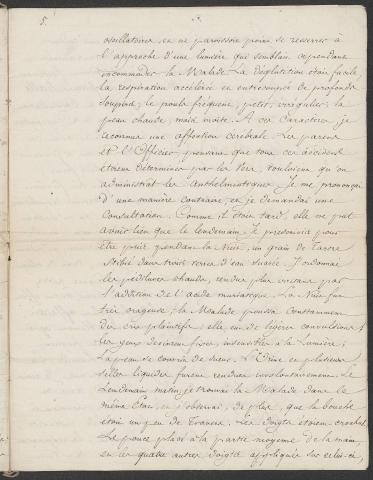 5.
oscillatoires, et ne paroissoit point se resserrer à
l'approche d'une lumière qui semblait cependant
incommoder la Malade. La déglutition étoit facile,
la respiration accélérée et entrecoupée de profonds
soupirs; le pouls fréquent, petit, irrégulier; la
peau chaude, mais moite. A ces Caractères je
reconnus une affection cérébrale. Les parens
et l'Officier, pensant que tous ces accidens
étoient déterminés par les Vers, vouloient qu'on
administrat les Anthelmintiques. Je me prononçai
d'une manière contraire, et je demandai une
Consultation. Comme il étoit tard, elle ne put
avoir lieu que le lendemain. Je prescrivis pour
être pris pendant la Nuit, un grain de Tartre
Stibié dans trois verres d'eau sucrée. J'ordonnai
les pédiluves chauds, rendus plus excitans par
l'addition de l'acide muriatique. La Nuit fut
très orageuse; la Malade poussa constamment
des cris plaintifs; elle eut de légers convulsions;
les yeux devinrent fixes, insensibles à la Lumière;
La peau se couvrit de sueur. L'Urine et plusieurs
selles liquides furent rendues involontairement. Le
Lendemain matin, je trouvai la Malade dans le
même État, et j'observai de plus, que la bouche
étoit un peu de travers. Les doigts étoient crochus,
Le pouce placé à la partie moyenne de la main,
et les quatre autres doigts appliqués sur celui-ci,